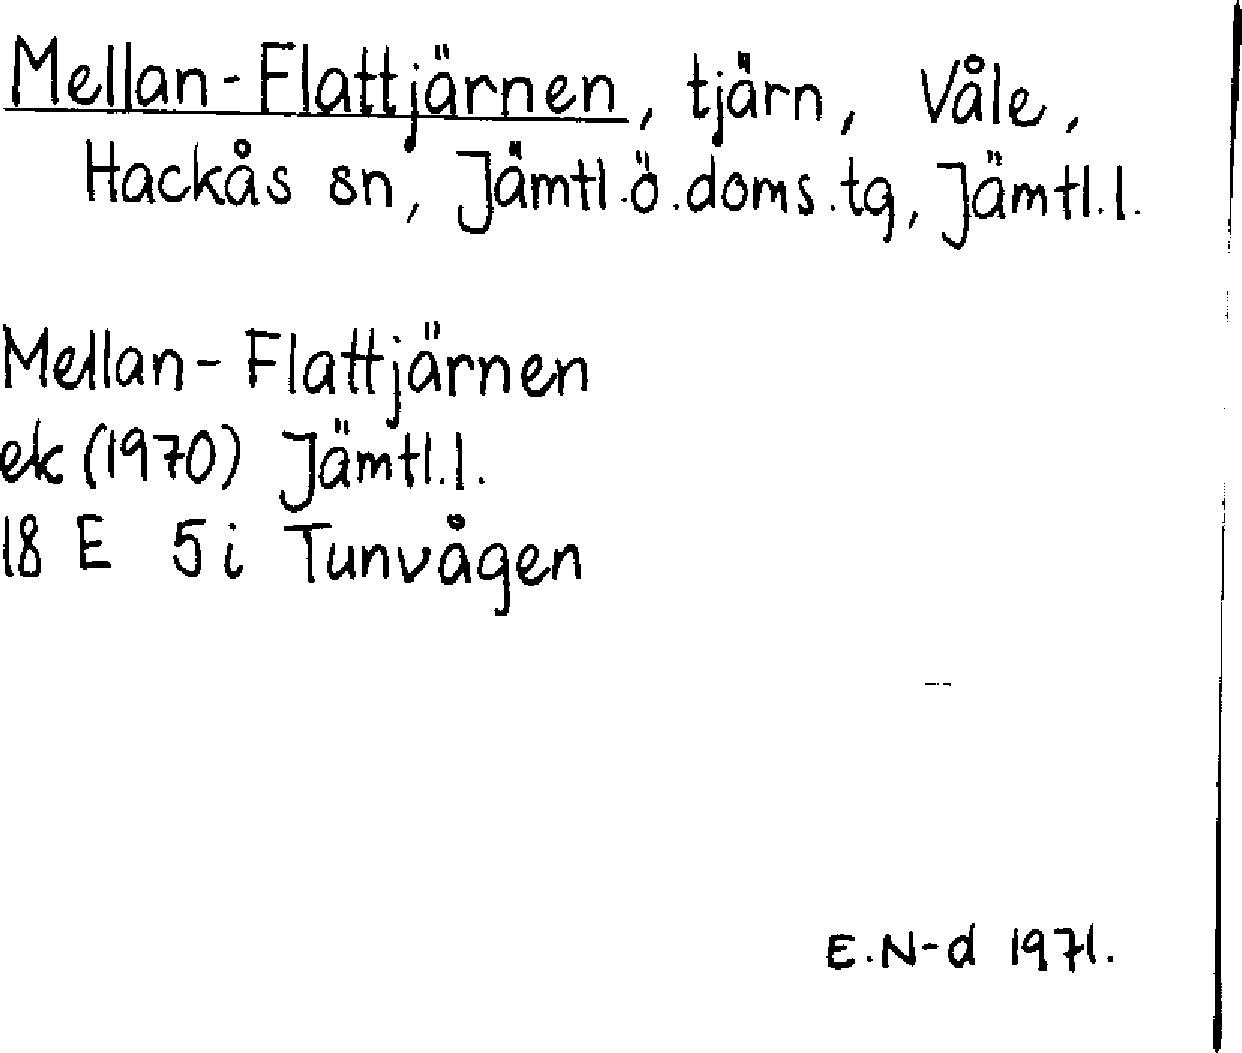 Mellan-Flattjärnen, tjärn, Våle,
Hackås sn, Jämtl.ö.doms.tg, Jämtl.l.
Mellan-Flattjärnen
ek (1970) Jämtl.l.
18 E 5i Tunvågen
E.N-d 1971.